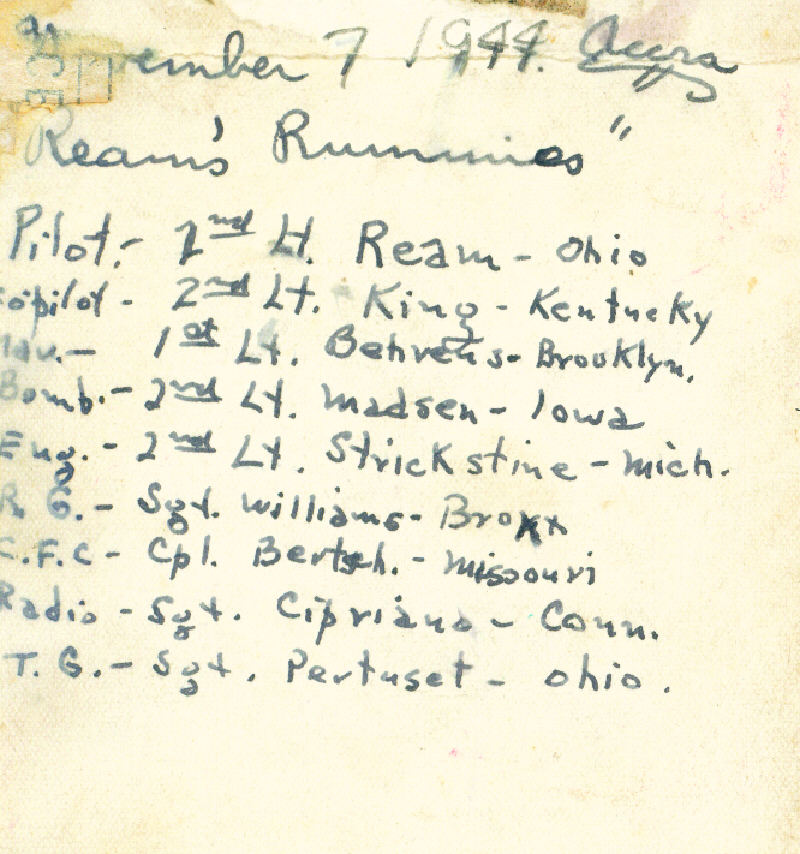 ember 7 1944. Accra
Ream's Rummies"
Pilot.- 2nd Lt. Ream - Ohio
copilot - 2nd Lt. King - Kentucky
Nav.- 1st Lt. Behrens - Brooklyn.
Bomb.- 2nd Lt. Madsen - Iowa
Eng. - 2nd Lt. Strickstine - Mich.
R. G. - Sgt. Williams - Bronx
C.F.C - Cpl. Bertsch. - Missouri
Radio - Sgt. Cipriano - Conn.
T. G. - Sgt. Pertuset - Ohio.